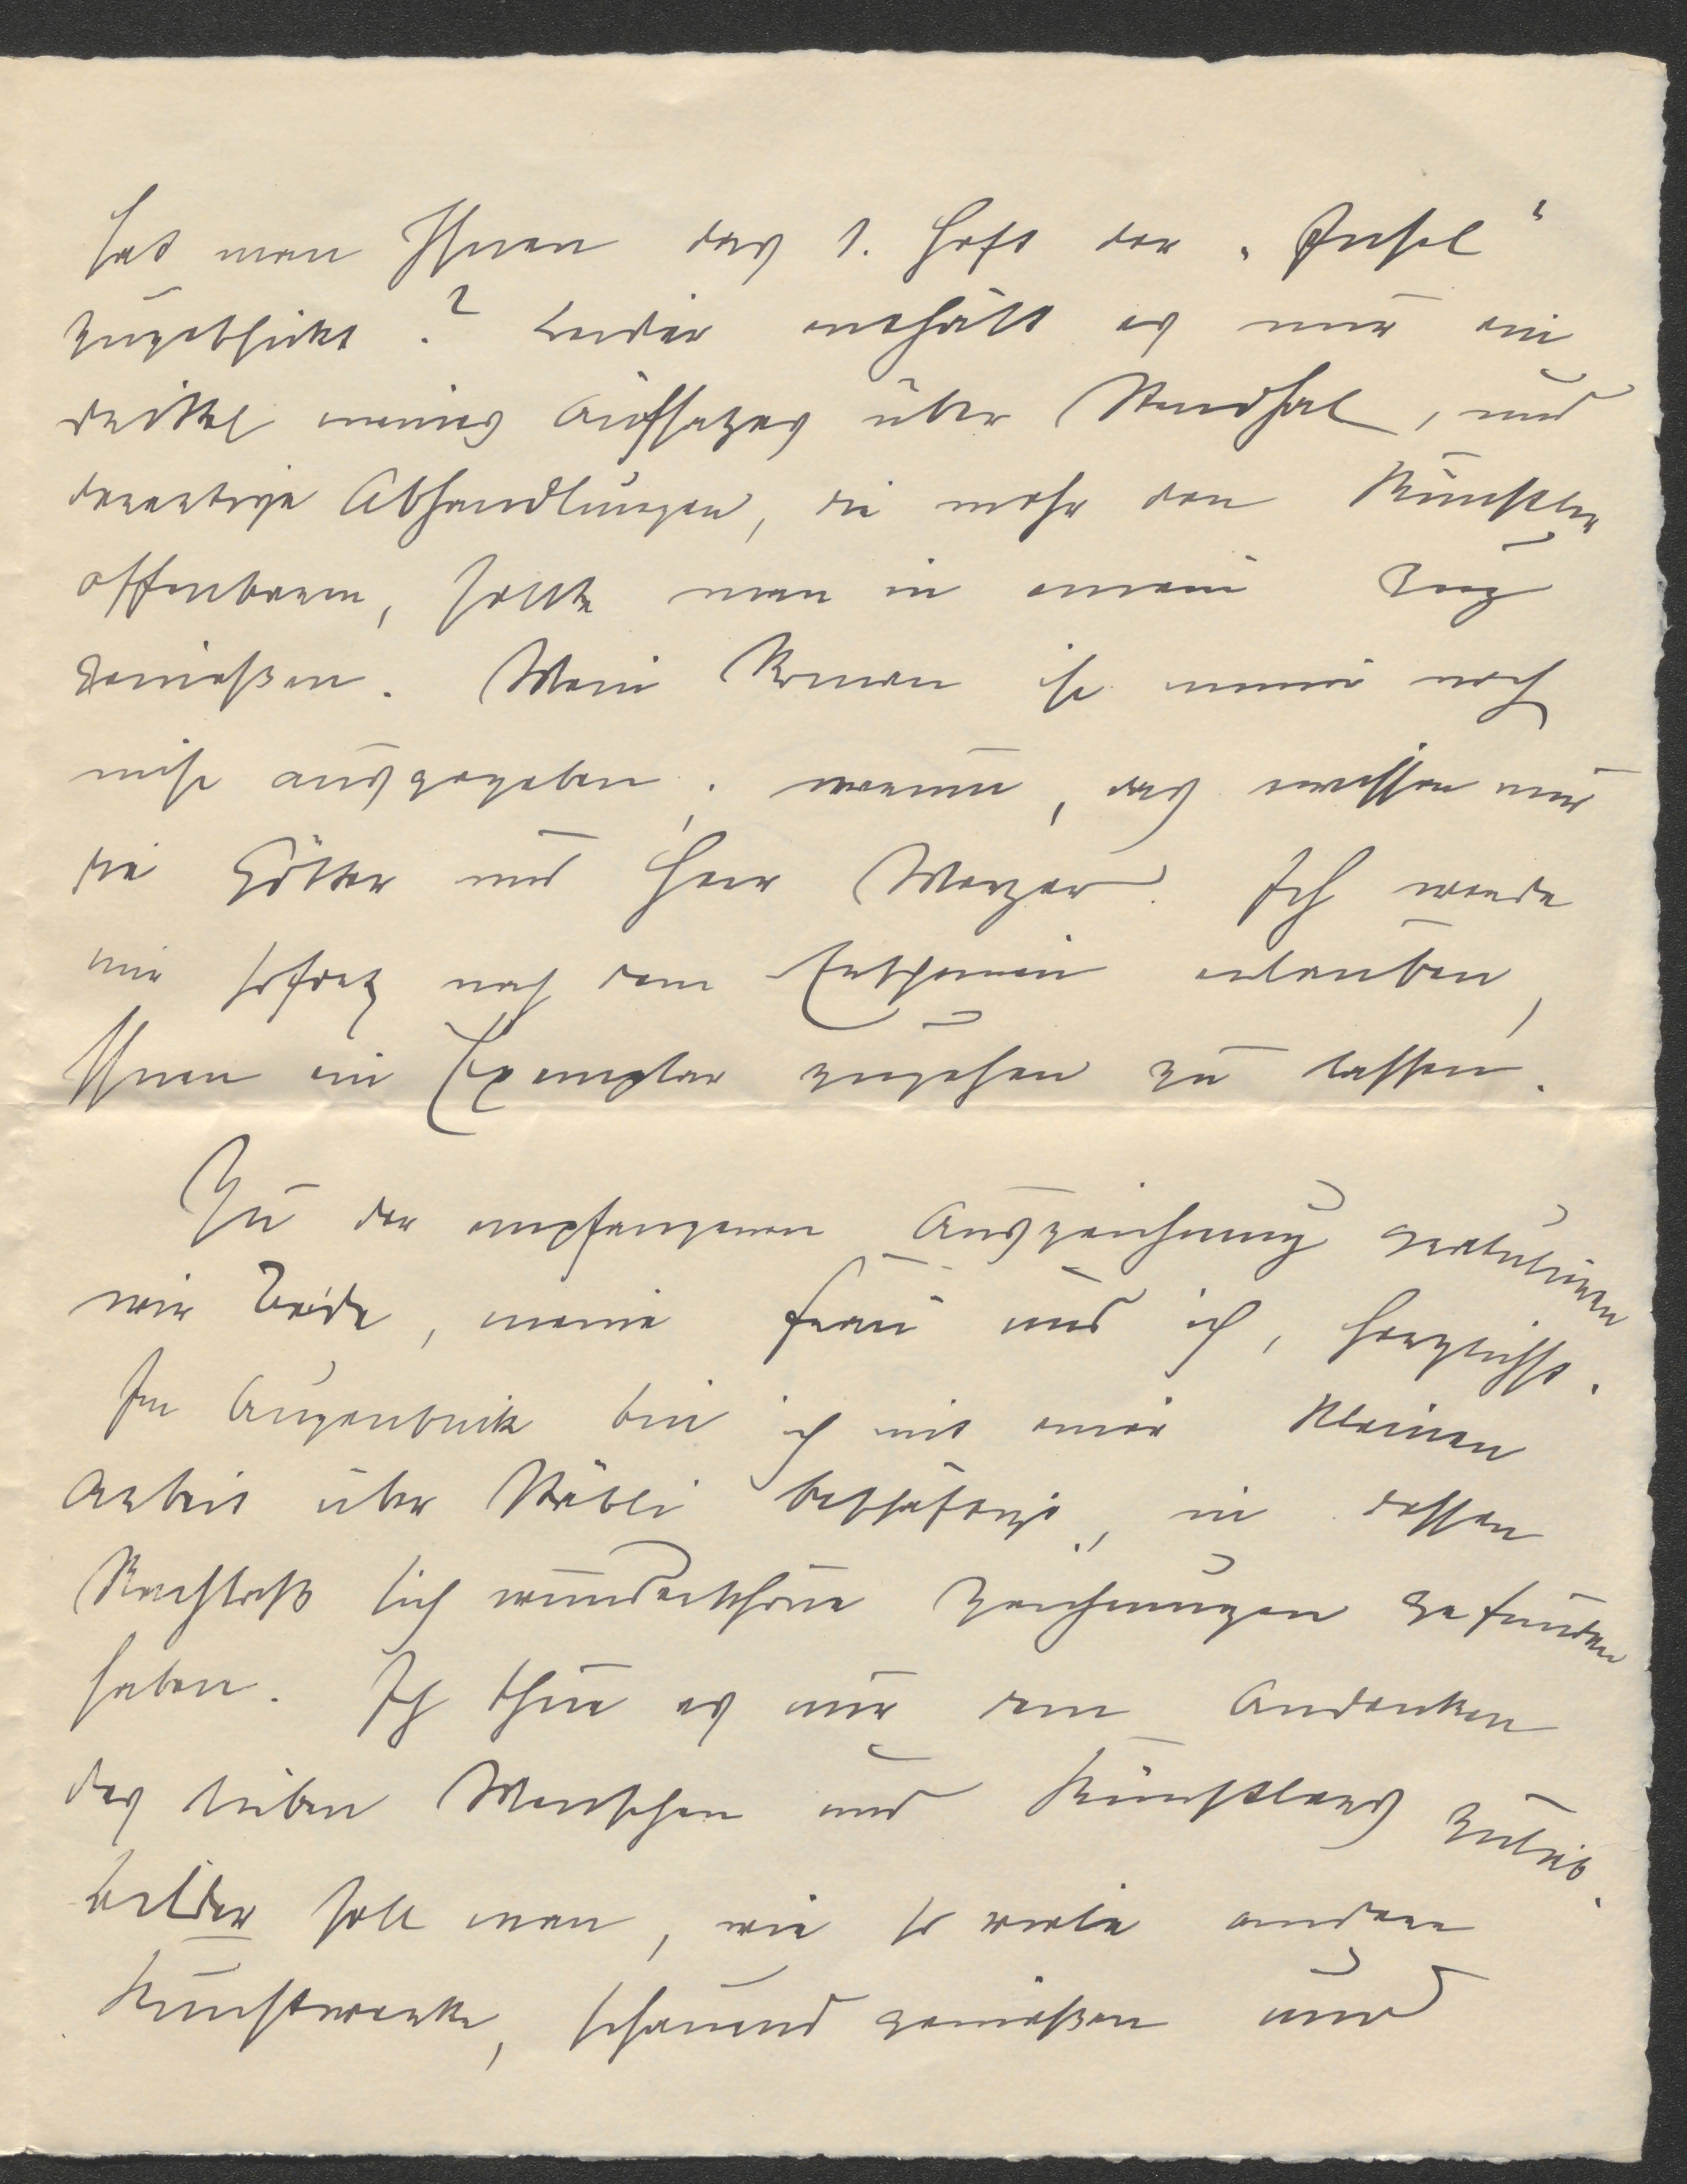 hat man Ihnen das 1. Heft der „Insel“
zugeschickt? Leider enthält es nur ein
drittel meines Aufsatzes über Stendhal, und
derartige Abhandlungen, die mehr den Künstler
offenbaren, sollte man in einem Zug
genießen. Mein Roman ist immer noch
nicht ausgegeben; warum, das wissen nur
die Götter und Herr Merzer. Ich werde
mir sofort nach dem Erscheinen erlauben,
Ihnen ein Exemplar zugehen zu lassen.
Zu der empfangenen Auszeichnung gratulieren
wir Beide, meine Frau und ich, herzlichst.
Im Augenblick bin ich mit einer kleinen
Arbeit über Stäbli beschäftigt, in dessen
Nachlaß sich wunderschöne Zeichnungen gefunden
haben. Ich thue es nur dem Andenken
des lieben Menschen und Künstlers zulieb.
Bilder soll man, wie so viele andere
Kunstwerke, schauend genießen und